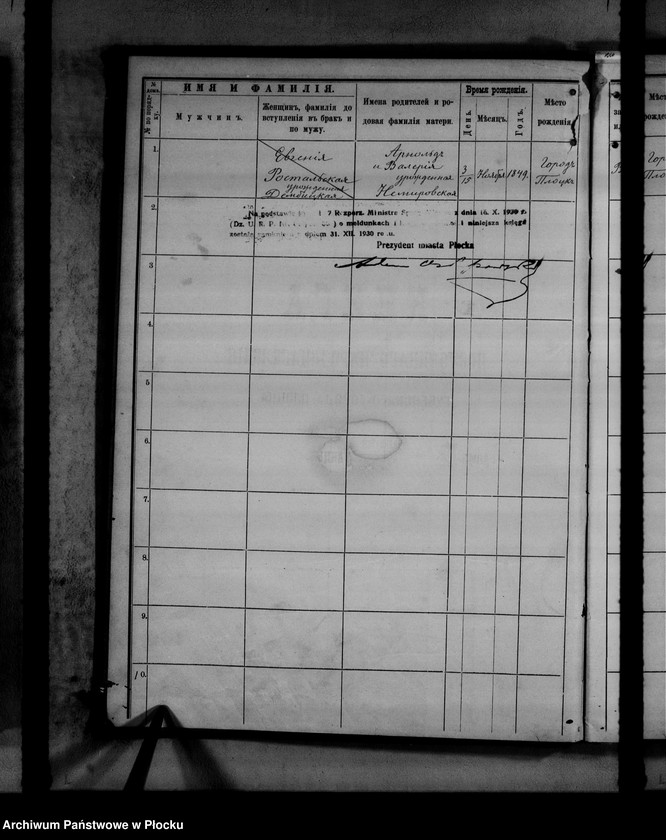 № дома.
№ по порядку.
ИМЯ И ФАМИЛІЯ.
Мужчинъ.
Женщинъ, фамилія до
вступленія въ бракъ и
по мужу.
Имена родителей и ро-
довая фамилія матери.
Время рожденія.
День.
Мѣсяцъ.
Годъ.
Мѣсто
рожденія.
1.
Евгенія
Ростальская
урожденная
Дембицкая
Арнольдъ
и Валерія
урожденная
Немировская
3/15
Ноября
1849.
Городъ
Плоцкъ
2.
Na podstawie 7 Rozporz. Ministra z dnia 16. X. 1930 r.
(Dz. U. R. P. o meldunkach i niniejsza księga
dniem 31. XII. 1930 roku.
Prezydent miasta Płocka
3
4.
5
6.
7.
8.
9.
10.
Archiwum Państwowe w Płocku